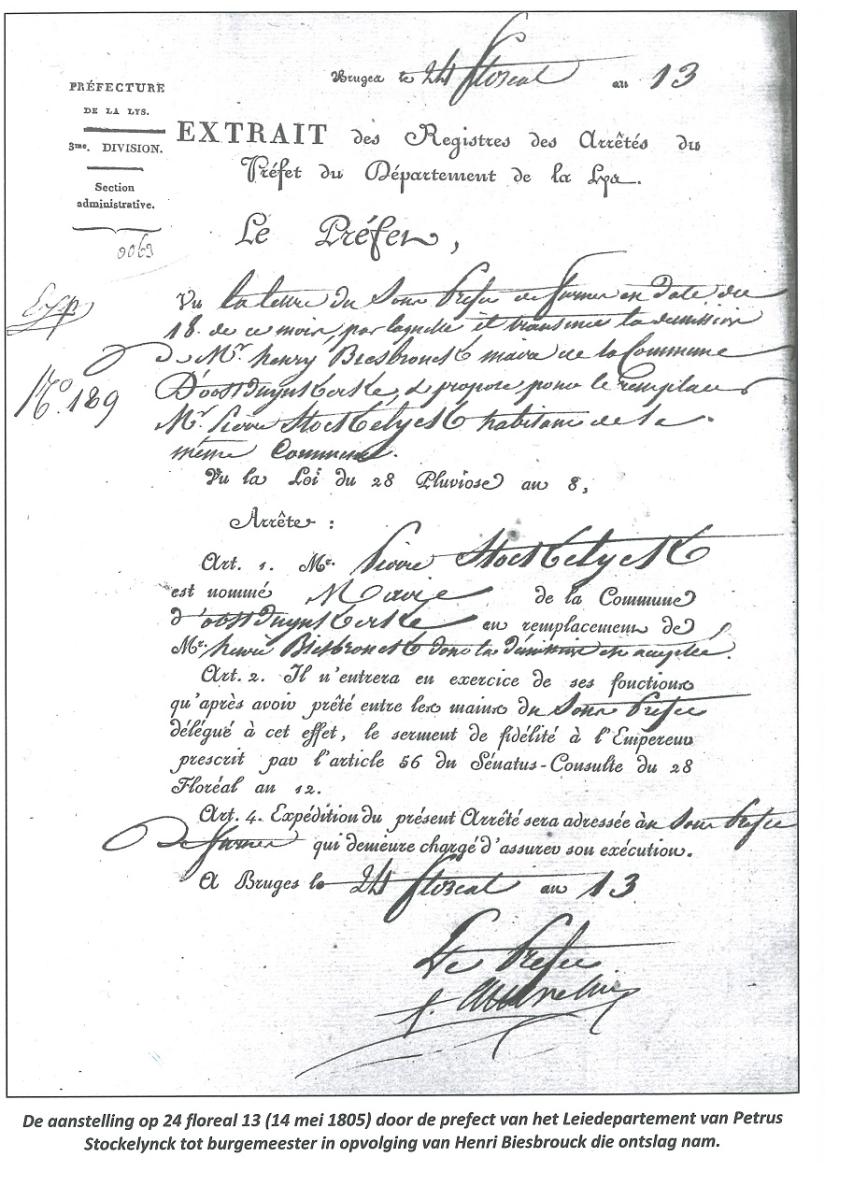 Bruges le 24 floreal an 13
PRÉFECTURE
DE LA LYS.
3me. DIVISION.
Section
administrative.
9069
EXTRAIT des Registres des Arrêtés du
Préfet du Département de la Lys.
Le Préfet,
Exp
No. 189
Vu la lettre du Sous Prefet de furnes en date du
18. de ce mois, par laquelle il transmet la démission
de Mr. henry Biesbrouck maire de la Commune
D'oostduynkerke, & propose pour le remplacer
Mr. Pierre Stockelynck habitant de la
même Commune.
Vu la Loi du 28 Pluviose an 8,
Arrête :
Art. 1. Mr. Pierre Stockelynck
est nommé Maire de la Commune
d'oostduynkerke en remplacement de
Mr. henri Biesbrouck dont la démission est acceptée.
Art. 2. Il n'entrera en exercice de ses fonctions
qu'après avoir prêté entre les mains du Sous Prefet
délégué à cet effet, le serment de fidélité à l'Empereur
prescrit par l'article 56 du Sénatus-Consulte du 28
Floréal an 12.
Art. 4. Expédition du présent Arrêté sera adressée au Sous Prefet
de furnes qui demeure chargé d'assurer son exécution.
A Bruges le 24 floreal an 13
Le Prefet
De aanstelling op 24 floreal 13 (14 mei 1805) door de prefect van het Leiedepartement van Petrus
Stockelynck tot burgemeester in opvolging van Henri Biesbrouck die ontslag nam.